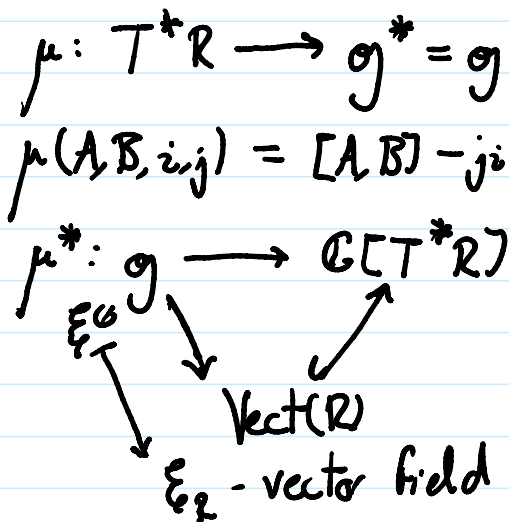 μ: T*R → g* = g
μ(A,B,i,j) = [A,B] - ji
μ*: g → ℂ[T*R]
ξ
Vect(R)
ξ_R - vector field